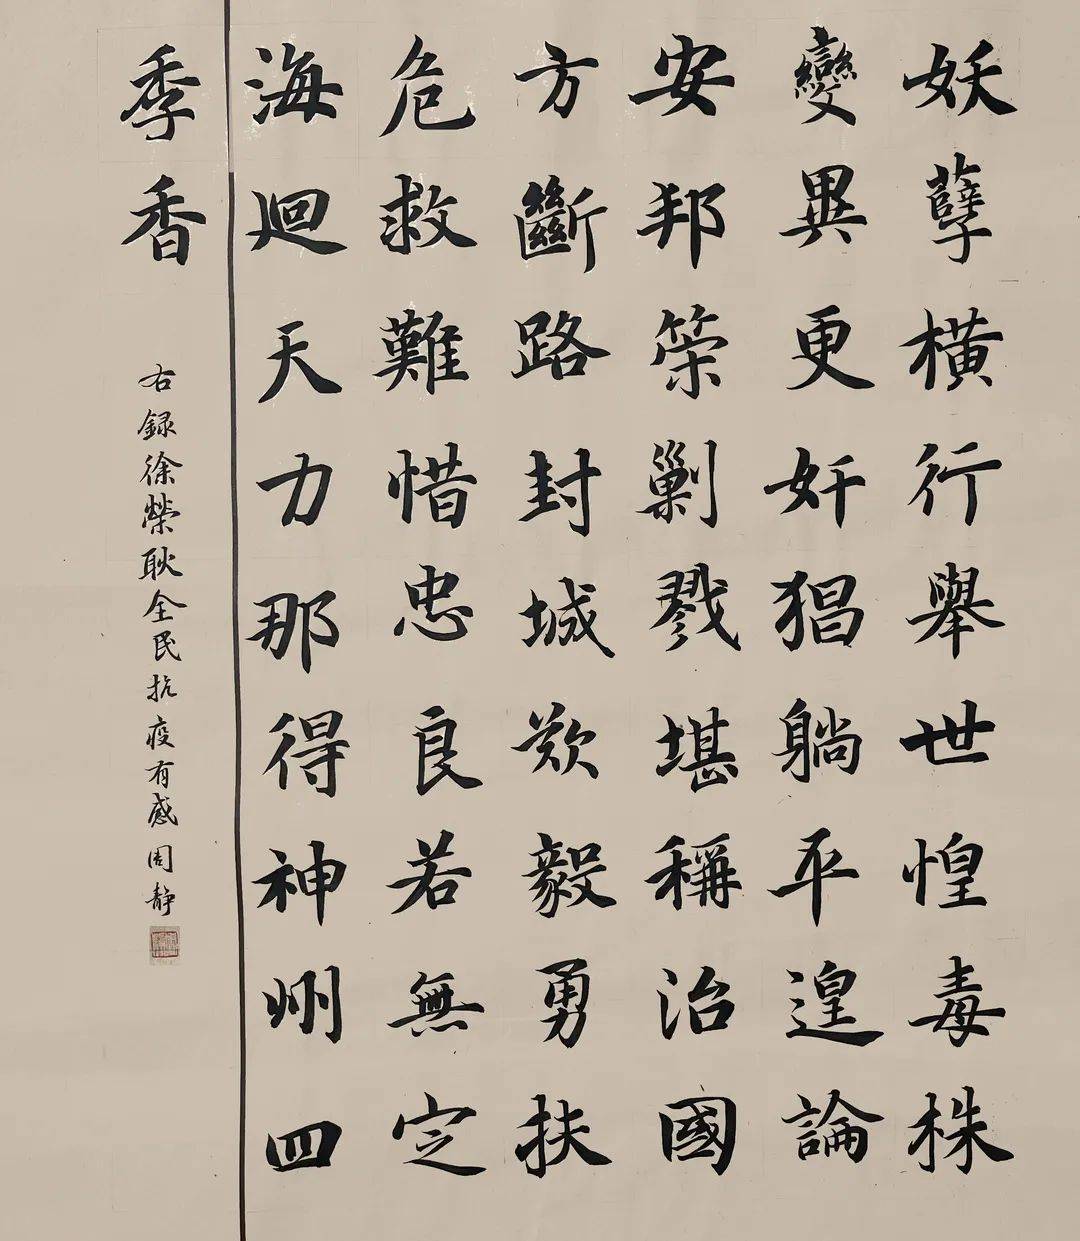 妖孽橫行舉世惶毒株
變異更奸猖躺平遑論
安邦策剿戮堪稱治國
方斷路封城毅勇扶
危救難惜忠良若無定
海迴天力那得神州四
季香
右録徐榮耿全民抗疫有感周靜